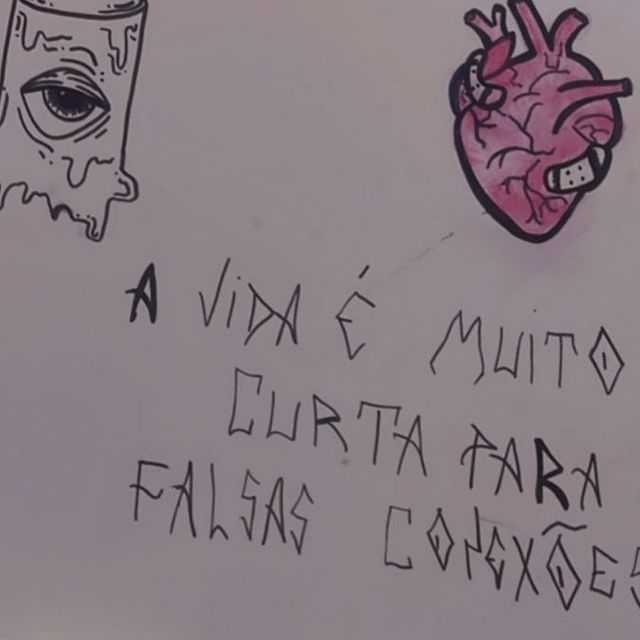 A VIDA É MUITO
CURTA PARA
FALSAS CONEXÕES